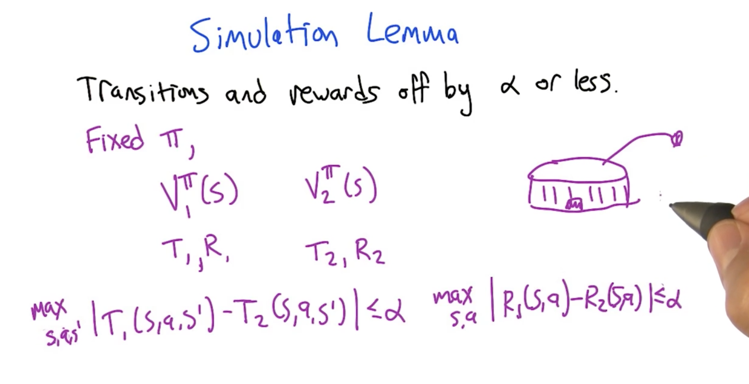 Simulation Lemma
Transitions and rewards off by α or less.
Fixed π,
V₁^π(s) V₂^π(s)
T₁, R₁ T₂, R₂
max_{s,a,s'} |T₁(s,a,s')-T₂(s,a,s')| ≤ α max_{s,a} |R₁(s,a)-R₂(s,a)| ≤ α